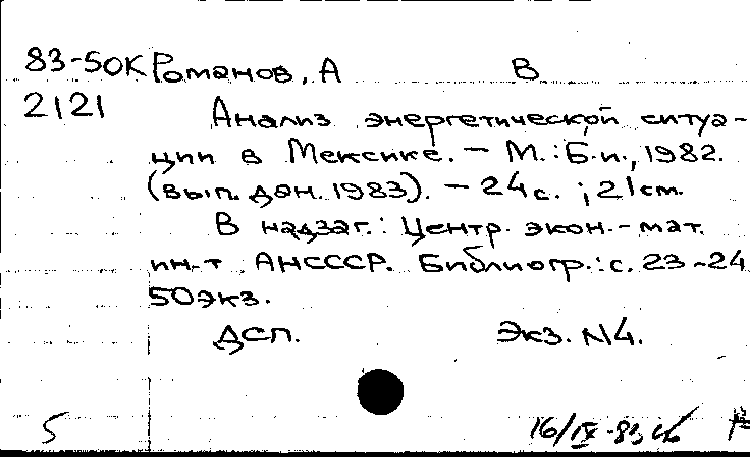 83-50К Романов, А В.
2121 Анализ энергетической ситуа-
ции в Мексике. - М.: Б.и., 1982.
(вып. дан. 1983). - 24 с. ; 21 см.
В надзаг.: Центр. экон.-мат.
ин-т АНСССР. Библиогр.: с. 23-24
50 экз.
ДСП. Экз. N4.
5 16/IX-83